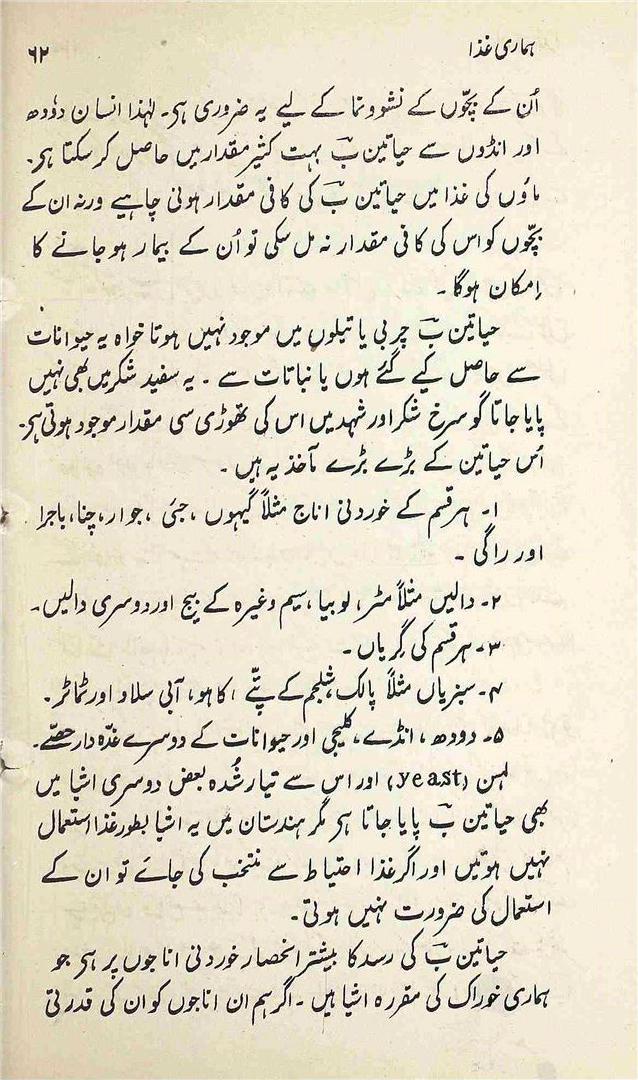 ہماری غذا
۶۲
اُن کے بچّوں کے نشوونما کے لیے یہ ضروری ہی۔ لہٰذا انسان دوٗدھ
اور انڈوں سے حیاتین بؔ بہت کثیر مقدار میں حاصل کر سکتا ہی۔
ماؤں کی غذا میں حیاتین بؔ کی کافی مقدار ہونی چاہیے ورنہ ان کے
بچّوں کو اس کی کافی مقدار نہ مل سکی تو اُن کے بیمار ہو جانے کا
اِمکان ہوگا۔
حیاتین بؔ چربی یا تیلوں میں موجود نہیں ہوتا خواہ یہ حیوانات
سے حاصل کیے گئے ہوں یا نباتات سے ۔ یہ سفید شکر میں بھی نہیں
پایا جاتا گو سرخ شکر اور شہد میں اس کی تھوڑی سی مقدار موجود ہوتی ہی۔
اُس حیاتین کے بڑے بڑے مآخذ یہ ہیں ۔
۱۔ ہر قسم کے خوردنی اناج مثلاً گیہوں ، جئی ، جوار، چنا، باجرا
اور راگی ۔
۲۔ دالیں مثلاً مٹر، لوبیا ، سیم وغیرہ کے بیج اور دوسری دالیں۔
۳۔ ہر قسم کی گِریاں ۔
۴۔ سبزیاں مثلاً پالک ، شلجم کے پتّے ، کاہو، آبی سلاد اور ٹماٹر۔
۵۔ دوٗدھ ، انڈے ، کلیجی اور حیوانات کے دوسرے غدّہ دار حصّے۔
لہن (yeast) اور اس سے تیار شُدہ بعض دوسری اشیا میں
بھی حیاتین بؔ پایا جاتا ہی مگر ہندستان میں یہ اشیا بطور غذا استعمال
نہیں ہوتیں اور اگر غذا احتیاط سے منتخب کی جائے تو ان کے
استعمال کی ضرورت نہیں ہوتی۔
حیاتین بؔ کی رسد کا بیشتر انحصار خوردنی اناجوں پر ہی جو
ہماری خوراک کی مقررہ اشیا ہیں ۔ اگر ہم ان اناجوں کو ان کی قدرتی